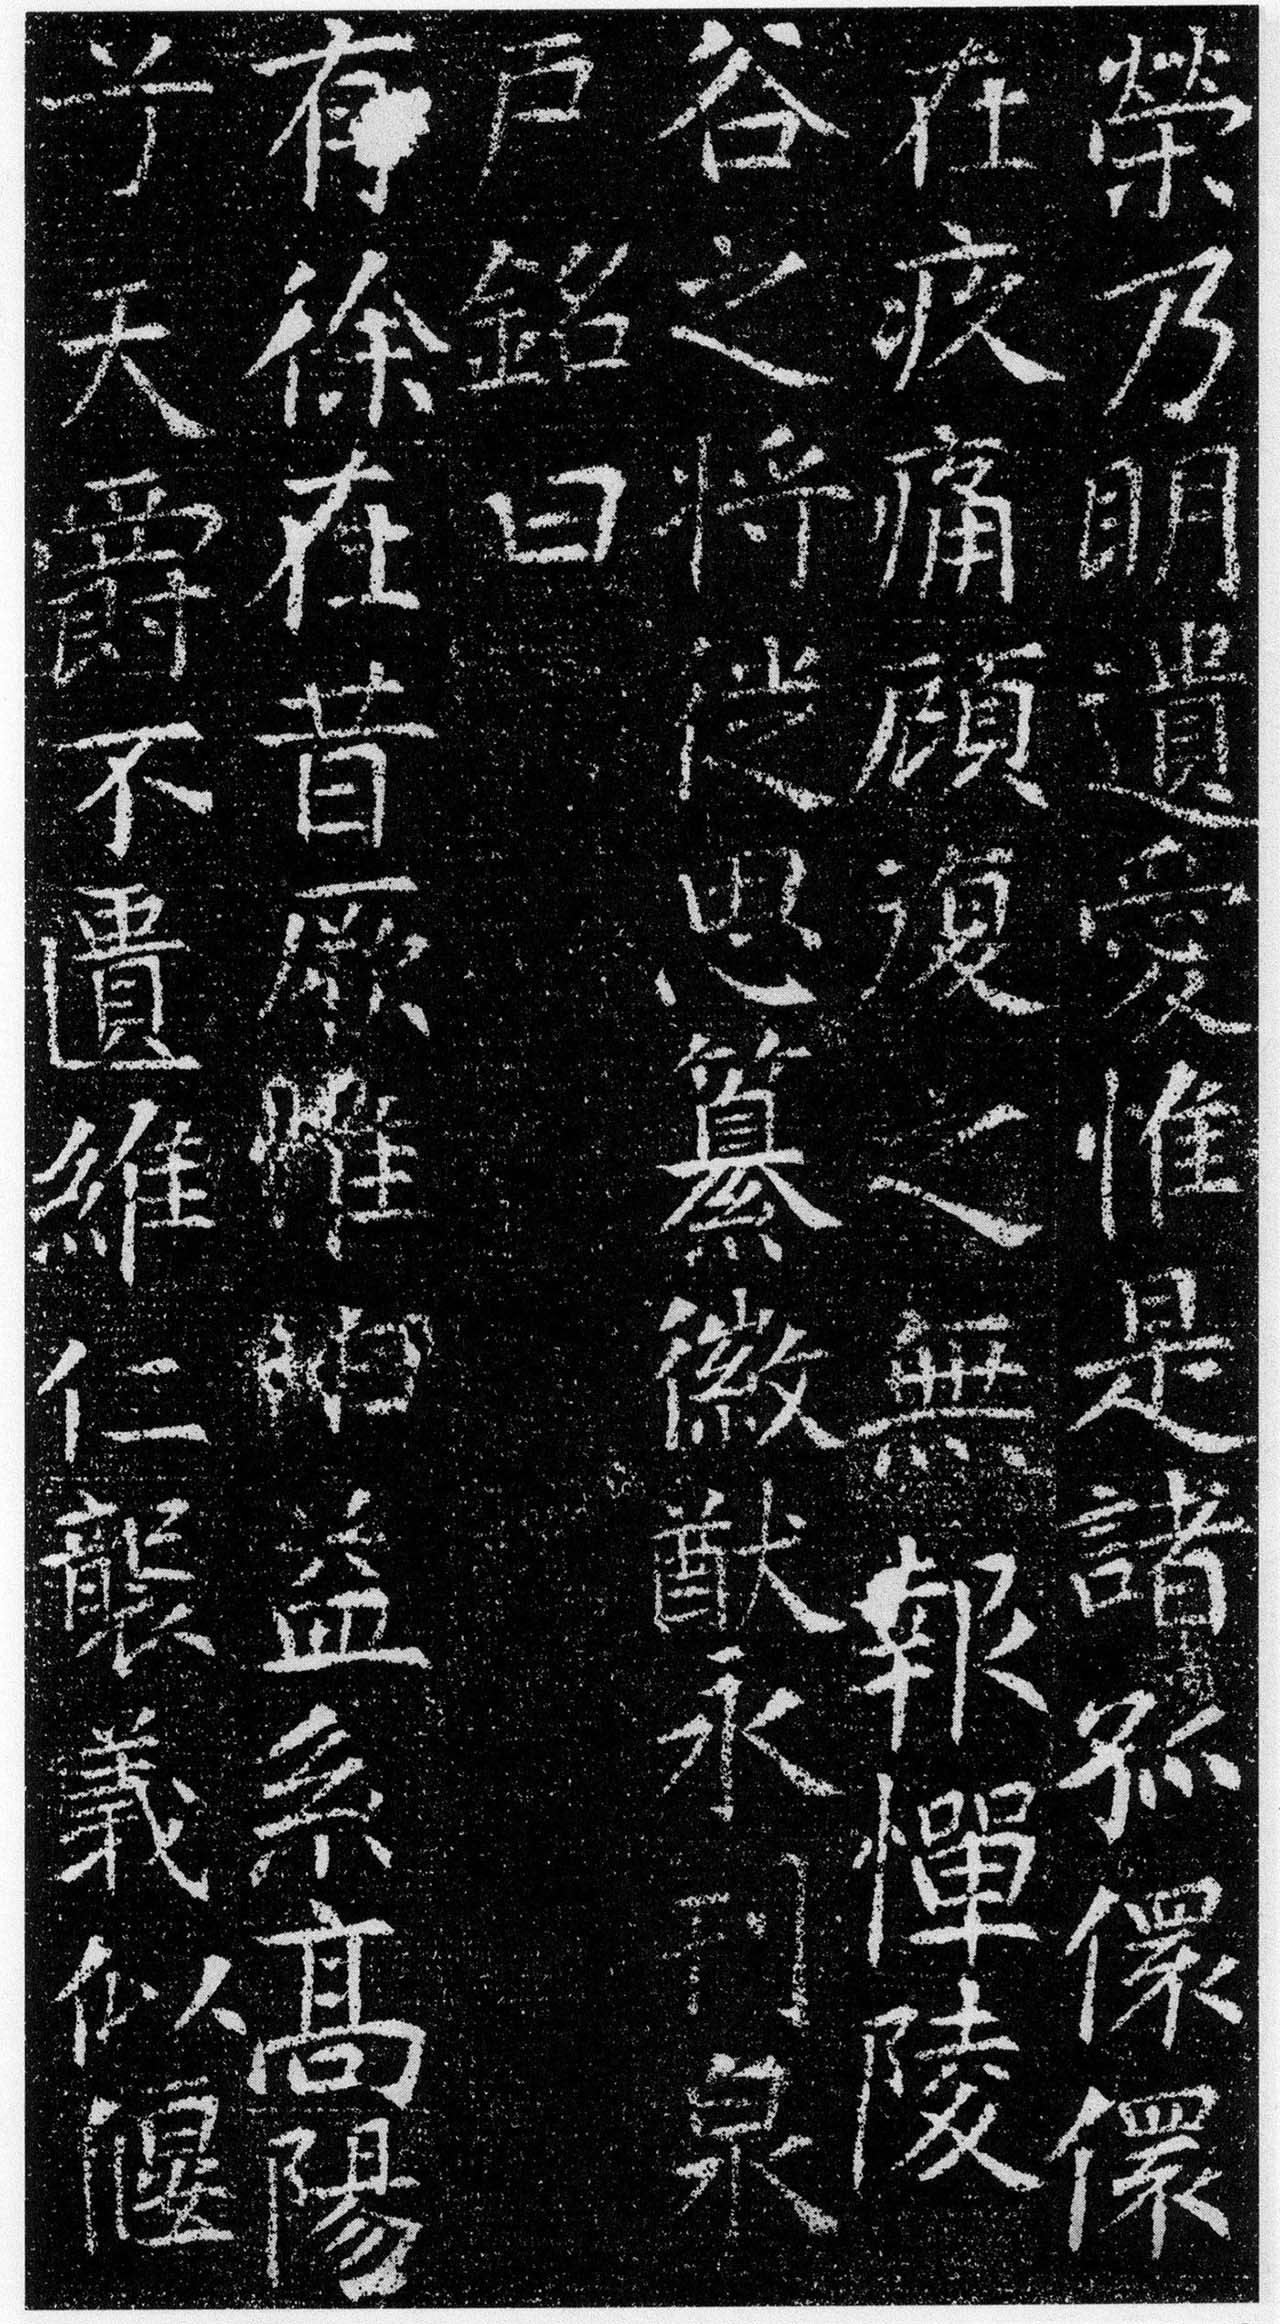 榮乃明遺愛惟是諸孤儇儇
在疚痛顧復之無報憚陵
谷之將從思纂徽猷永刊泉
戶銘曰
有徐在昔厥惟伯益系高陽
兮天爵不匱維仁襲義似偃